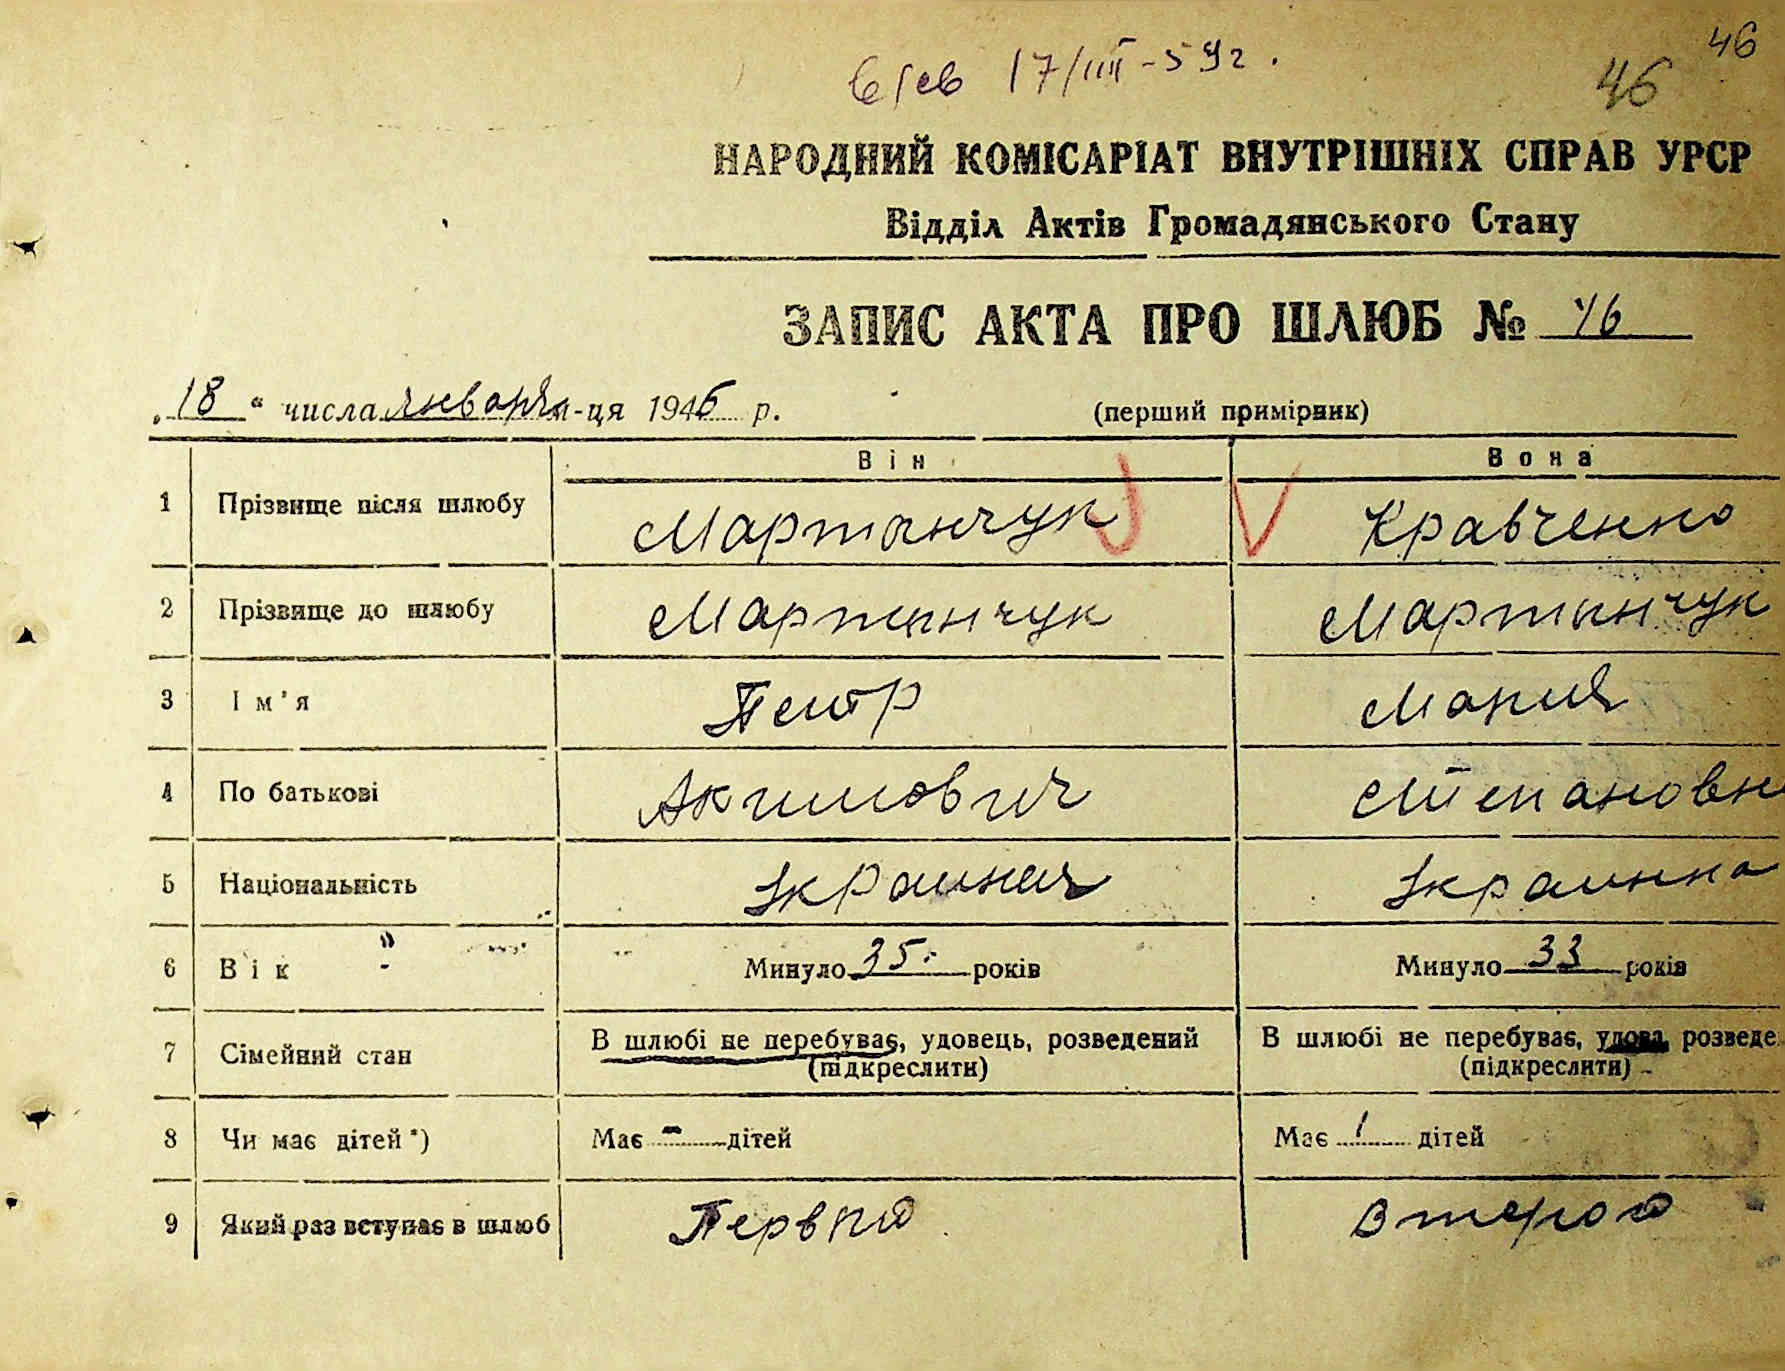 46
17/III-59г.
46
НАРОДНИЙ КОМІСАРІАТ ВНУТРІШНІХ СПРАВ УРСР
Відділ Актів Громадянського Стану
ЗАПИС АКТА ПРО ШЛЮБ № 46
„18“ числа января м-ця 1946 р. (перший примірник)
Він Вона
1 Прізвище після шлюбу Мартынчук Кравченко
2 Прізвище до шлюбу Мартынчук Мартынчук
3 Ім'я Петр Мария
4 По батькові Акимович Степановн
5 Національність Украинец Украинка
6 Вік Минуло 35 років Минуло 33 років
7 Сімейний стан В шлюбі не перебуває, удовець, розведений В шлюбі не перебуває, удова, розведе
(підкреслити) (підкреслити)
8 Чи має дітей*) Має - дітей Має 1 дітей
9 Який раз вступає в шлюб Первый Второй